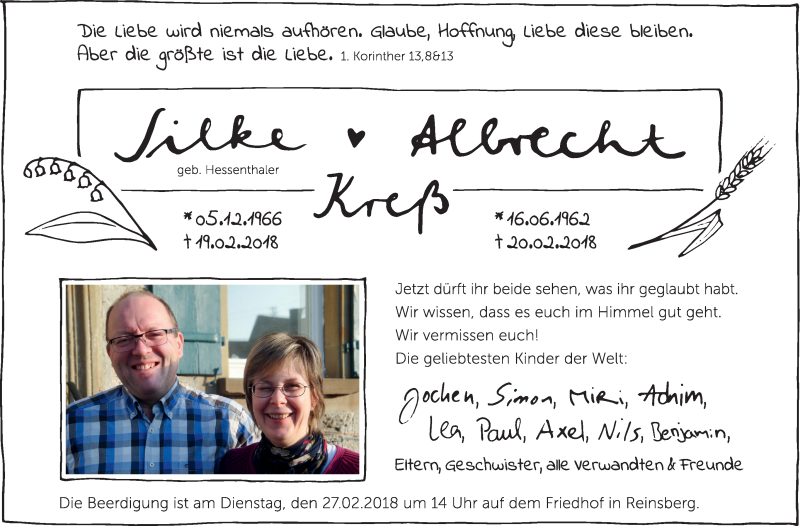 Die Liebe wird niemals aufhören. Glaube, Hoffnung, Liebe diese bleiben.
Aber die größte ist die Liebe. 1. Korinther 13,8&13
Silke ♥ Albrecht
geb. Hessenthaler
Kreß
* 05.12.1966
† 19.02.2018
* 16.06.1962
† 20.02.2018
Jetzt dürft ihr beide sehen, was ihr geglaubt habt.
Wir wissen, dass es euch im Himmel gut geht.
Wir vermissen euch!
Die geliebtesten Kinder der Welt:
Jochen, Simon, Miri, Achim,
Lea, Paul, Axel, Nils, Benjamin,
Eltern, Geschwister, alle Verwandten & Freunde
Die Beerdigung ist am Dienstag, den 27.02.2018 um 14 Uhr auf dem Friedhof in Reinsberg.